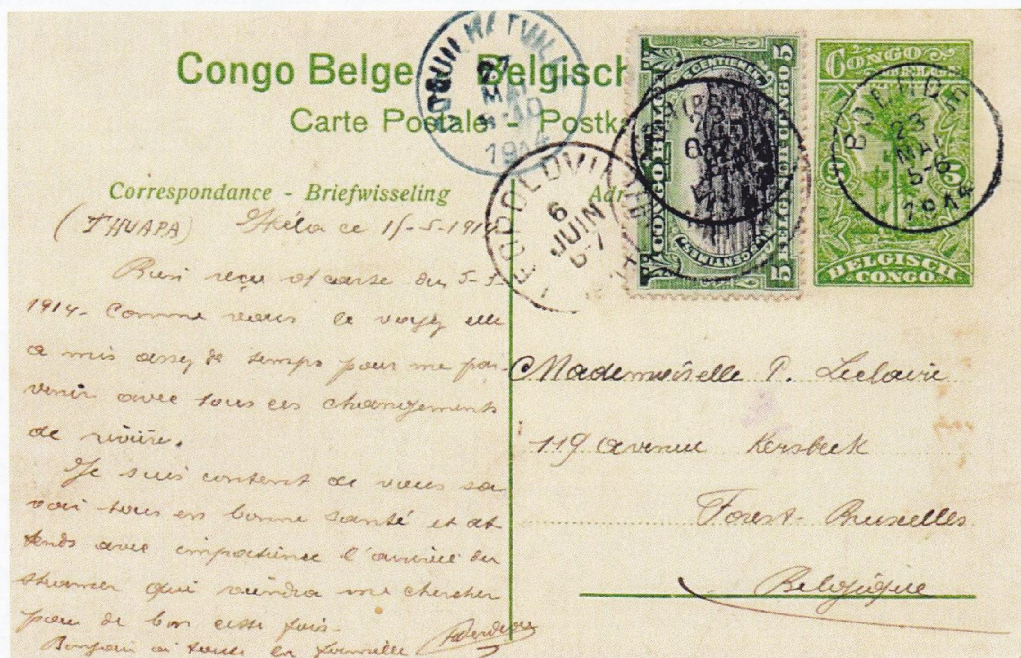 Congo Belge Belgisch
Carte Postale - Postka
Correspondance - Briefwisseling Adr
COQUILHATVILLE
27
MAI
1914
LEOPOLDVILLE
6
JUIN
6-7
CONGO BELGE
5 CENTIEMES 5
BELGISCH CONGO
CONGO
BELGE
5 5
BELGISCH
CONGO
BOENDE
23
MAI
5-6
1914
(THUAPA) ce 15-5-1914
Bien reçu v/ carte du 5-3-
1914- Comme vous le voyez elle
a mis assez de temps pour me par-
venir avec tous ces changements
de rivière.
Je suis content de vous sa
voir tous en bonne santé et at
tends avec impatience l'arrivée du
steamer qui viendra me chercher
pour de bon cette fois-
Bonjour à toute la famille
Mademoiselle P. Leclaire
119 avenue Kersbeek
Forest-Bruxelles
Belgique